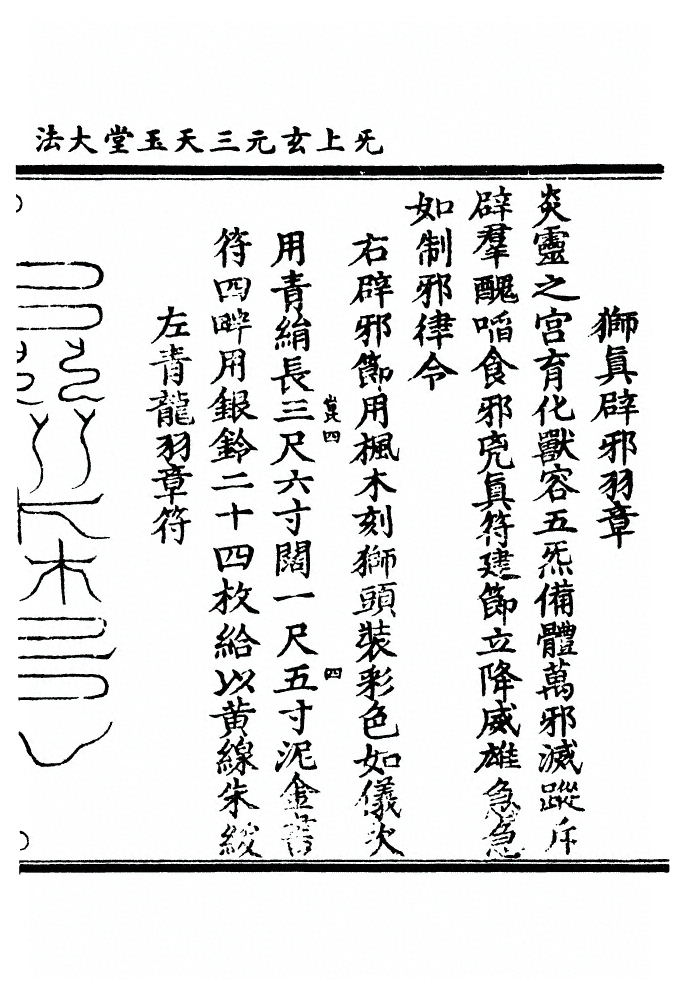 无上玄元三天玉堂大法
獅真辟邪羽章
炎靈之宮育化獸容五炁備體萬邪滅蹤斥
辟羣醜啗食邪兇真符建節立降威雄急急
如制邪律令
右辟邪節用楓木刻獅頭裝彩色如儀次
崑四
四
用青絹長三尺六寸闊一尺五寸泥金書
符四畔用銀鈴二十四枚給以黃線朱綬
左青龍羽章符